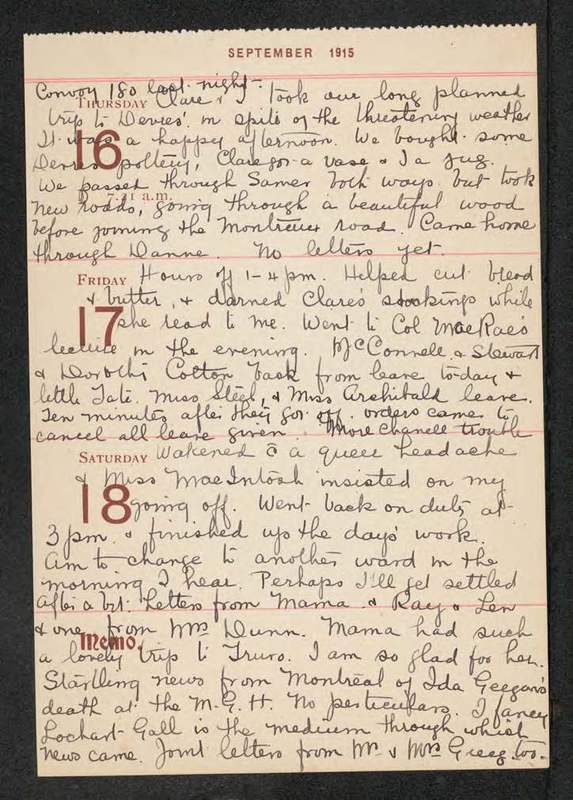 SEPTEMBER 1915
Convoy 180 last night -
THURSDAY Clare & I took our long planned
trip to Devres' in spite of the threatening weather
16 It was a happy afternoon. We bought some
Devres pottery, Clare got a vase & I a jug.
We passed through Samer both ways but took
7.21 a.m.
new roads, going through a beautiful wood
before joining the Montreux road. Came home
through Danne. No letters yet.
FRIDAY Hours off 1-4 pm. Helped cut bread
& butter, & darned Clare's stockings while
17 she read to me. Went to Col MacRae's
lecture in the evening. McConnell & Stewart
& Dorothi Cotton back from leave to-day &
little Tate. Miss Steel, & Miss Archibald leave.
Ten minutes after they got off. orders came to
cancel all leave given. More Chanell trouble
SATURDAY Wakened c̄ a queer headache
& Miss MacIntosh insisted on my
18 going off. Went back on duty at
3 pm. & finished up the day's work.
Am to change to another ward in the
morning I hear. Perhaps I'll get settled
after a bit. Letters from Mama & Ray & Len
& one from Mrs Dunn. Mama had such
Memo.
a lovely trip to Truro. I am so glad for her.
Startling news from Montreal of Ida
death at the M.G.H. No perticulars. I fancy
Lochart Gall is the medium through which
news came. Joint letters from Mr. & Mrs Greeg too.